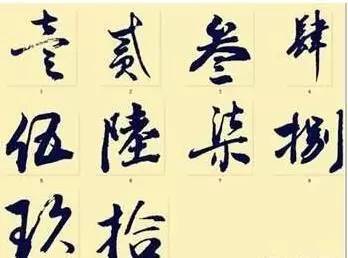 壹 貳 叁 肆
1 2 3 4
伍 陸 柒 捌
5 6 7 8
玖 拾